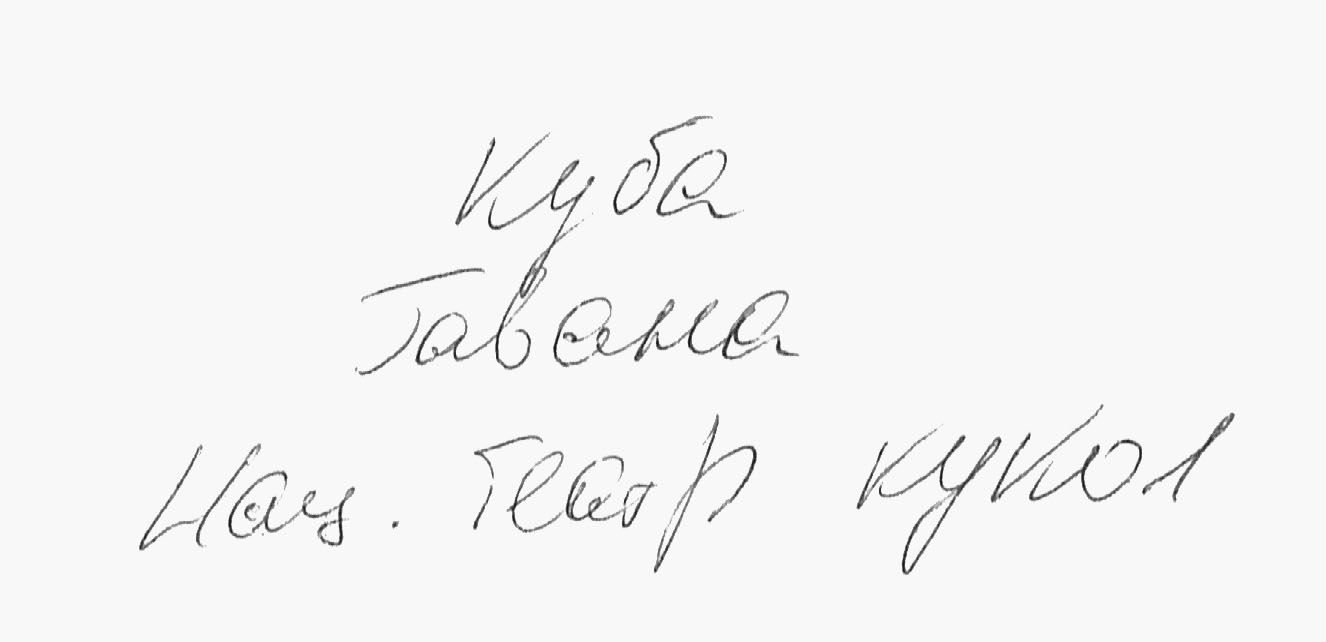 Куба
Гавана
Нац. театр кукол